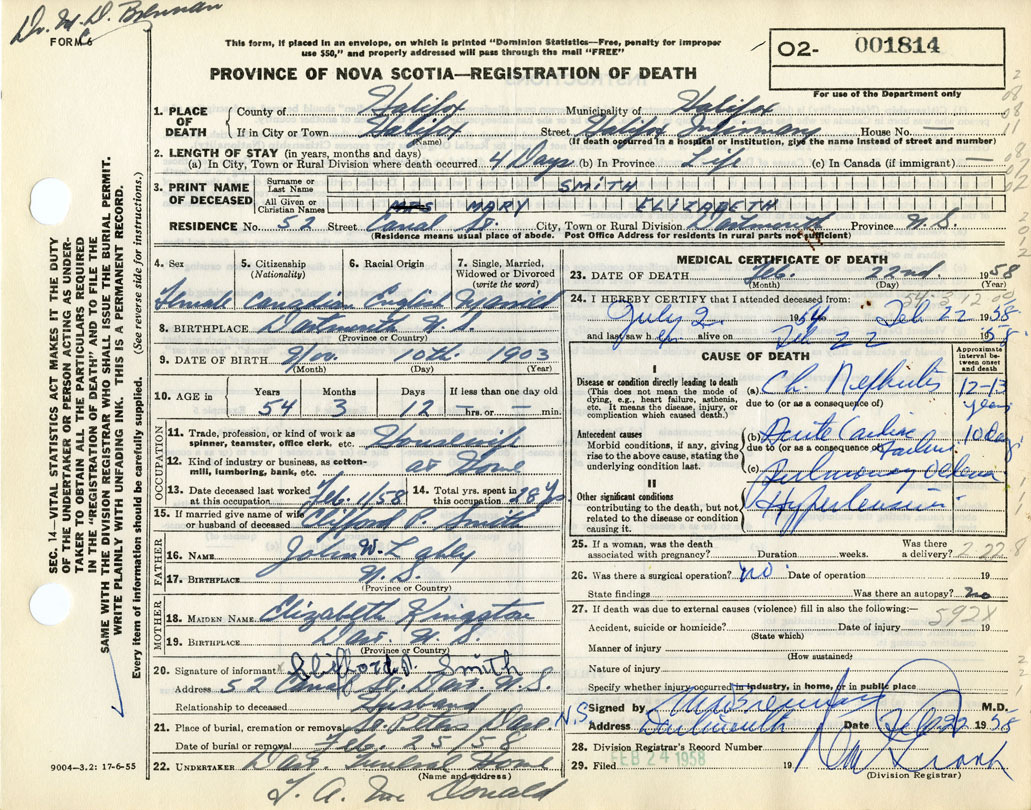 Dr. M. D. Brennan
FORM 6
This form, if placed in an envelope, on which is printed "Dominion Statistics—Free, penalty for improper
use $50," and properly addressed will pass through the mail "FREE"
PROVINCE OF NOVA SCOTIA—REGISTRATION OF DEATH
O2- 001814
For use of the Department only
1. PLACE OF DEATH
County of Halifax Municipality of Halifax
If in City or Town Halifax Street Halifax Infirmary House No. —
(Name) (If death occurred in a hospital or institution, give the name instead of street and number)
2. LENGTH OF STAY (in years, months and days)
(a) In City, Town or Rural Division where death occurred 4 Days (b) In Province Life (c) In Canada (if immigrant) —
3. PRINT NAME OF DECEASED
Surname or Last Name SMITH
All Given or Christian Names MRS MARY ELIZABETH
RESIDENCE No. 52 Street Canal St. City, Town or Rural Division Dartmouth Province N.S.
(Residence means usual place of abode. Post Office Address for residents in rural parts not sufficient)
4. Sex 5. Citizenship (Nationality) 6. Racial Origin 7. Single, Married, Widowed or Divorced (write the word)
Female Canadian English Married
8. BIRTHPLACE Dartmouth N.S.
(Province or Country)
9. DATE OF BIRTH Nov. 10th. 1903
(Month) (Day) (Year)
10. AGE in Years Months Days If less than one day old
54 3 12 — hrs. or — min.
OCCUPATION
11. Trade, profession, or kind of work as spinner, teamster, office clerk, etc. Housewife
12. Kind of industry or business, as cotton-mill, lumbering, bank, etc. at Home
13. Date deceased last worked at this occupation Feb. 1/58 14. Total yrs. spent in this occupation 28 Yrs
15. If married give name of wife or husband of deceased Clifford P. Smith
FATHER
16. NAME John W.
17. BIRTHPLACE N.S.
(Province or Country)
MOTHER
18. MAIDEN NAME Elizabeth Kingston
19. BIRTHPLACE Dart. N.S.
(Province or Country)
20. Signature of informant x Clifford P. Smith
Address 52 Canal St. Dart. N.S.
Relationship to deceased Husband
21. Place of burial, cremation or removal St. Peters Dart. N.S.
Date of burial or removal Feb. 25/58
22. UNDERTAKER Dart. Funeral Home
(Name and address)
T. A. Mc Donald
9004—3.2: 17-6-55
MEDICAL CERTIFICATE OF DEATH
23. DATE OF DEATH Feb. 22nd. 1958
(Month) (Day) (Year)
54-3-12 00
24. I HEREBY CERTIFY that I attended deceased from:
July 2 1954 Feb 22 1958
and last saw h er alive on Feb 22 1958
CAUSE OF DEATH
Approximate interval between onset and death
I
Disease or condition directly leading to death
(This does not mean the mode of dying, e.g., heart failure, asthenia, etc. It means the disease, injury, or complication which caused death.)
(a) Ch. Nephritis 12-13 years
due to (or as a consequence of)
Antecedent causes
Morbid conditions, if any, giving rise to the above cause, stating the underlying condition last.
(b) Acute Cardiac Failure 10 days
due to (or as a consequence of)
(c) Pulmonary Oedema
II
Other significant conditions
contributing to the death, but not related to the disease or condition causing it.
Hypertension
25. If a woman, was the death associated with pregnancy? Duration weeks. Was there a delivery? 2-22-8
26. Was there a surgical operation? no. Date of operation 19
State findings Was there an autopsy? no
27. If death was due to external causes (violence) fill in also the following:—
592X
Accident, suicide or homicide? Date of injury 19
(State which)
Manner of injury
(How sustained)
Nature of injury
Specify whether injury occurred in industry, in home, or in public place
Signed by M D Brennan M.D.
Address Dartmouth Date Feb 22 1958
28. Division Registrar's Record Number
29. Filed FEB 24 1958 19
(Division Registrar)
SEC. 14—VITAL STATISTICS ACT MAKES IT THE DUTY
OF THE UNDERTAKER OR PERSON ACTING AS UNDER-
TAKER TO OBTAIN ALL THE PARTICULARS REQUIRED
IN THE "REGISTRATION OF DEATH" AND TO FILE THE
SAME WITH THE DIVISION REGISTRAR WHO SHALL ISSUE THE BURIAL PERMIT.
WRITE PLAINLY WITH UNFADING INK. THIS IS A PERMANENT RECORD.
Every item of information should be carefully supplied. (See reverse side for instructions.)